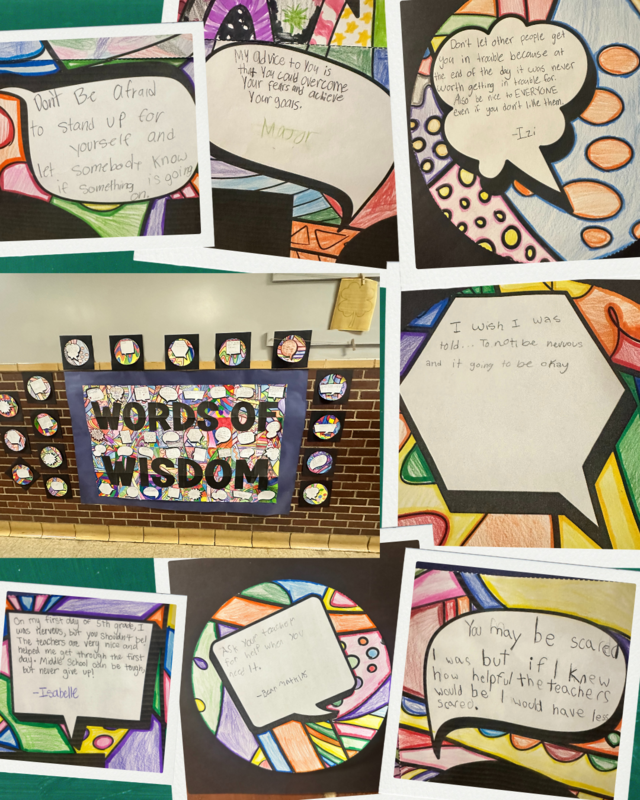 Don't Be Afraid
to stand up for
yourself and
let somebody know
if something is going
on.
My advice to you is
that you could overcome
your fears and achieve
your goals.
Major
Don't let other people get
you in trouble because at
the end of the day it was never
worth getting in trouble for.
Also be nice to EVERYONE
even if you don't like them.
-Izi
WORDS OF
WISDOM
I wish I was
told... To not be nervous
and it going to be okay
On my first day of 5th grade, I
was nervous, but you shouldn't be!
The teachers are very nice and
helped me get through the first
day. Middle School can be tough
but never give up!
-Isabelle
Ask your teacher
for help when you
need it.
You may be scared
I was but if I knew
how helpful the teachers
would be I would have
scared.